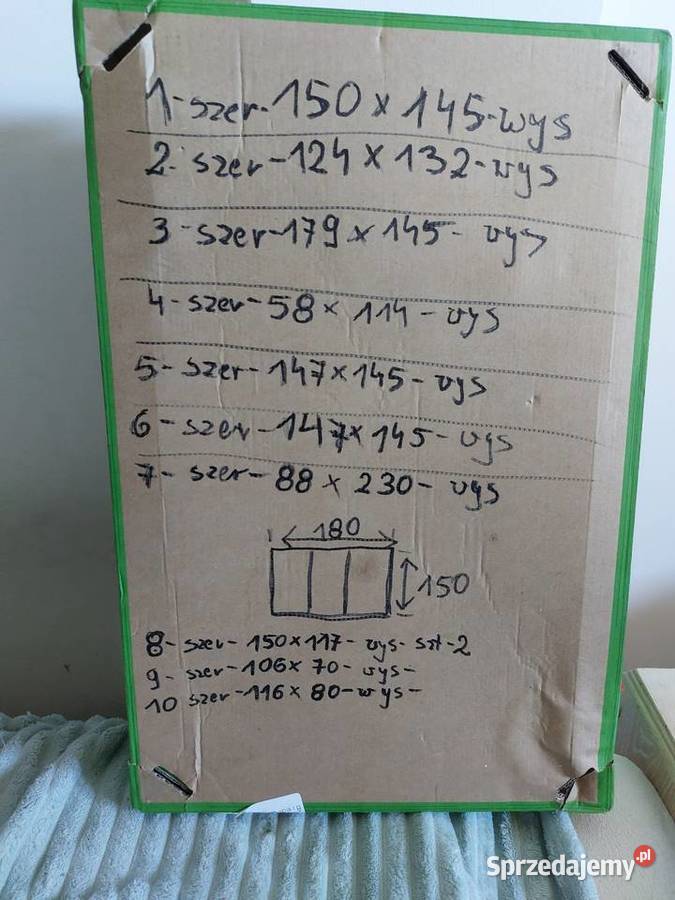 1-szer-150 x 145-wys
2. szer-124 x 132-wys
3-szer-179 x 145-wys
4-szer-58 x 114-wys
5-szer-147 x 145-wys
6-szer-147 x 145-wys
7-szer-88 x 230-wys
180
150
8-szer-150 x 117-wys-szt-2
9-szer-106 x 70-wys-
10 szer-116 x 80-wys-
Sprzedajemy.pl